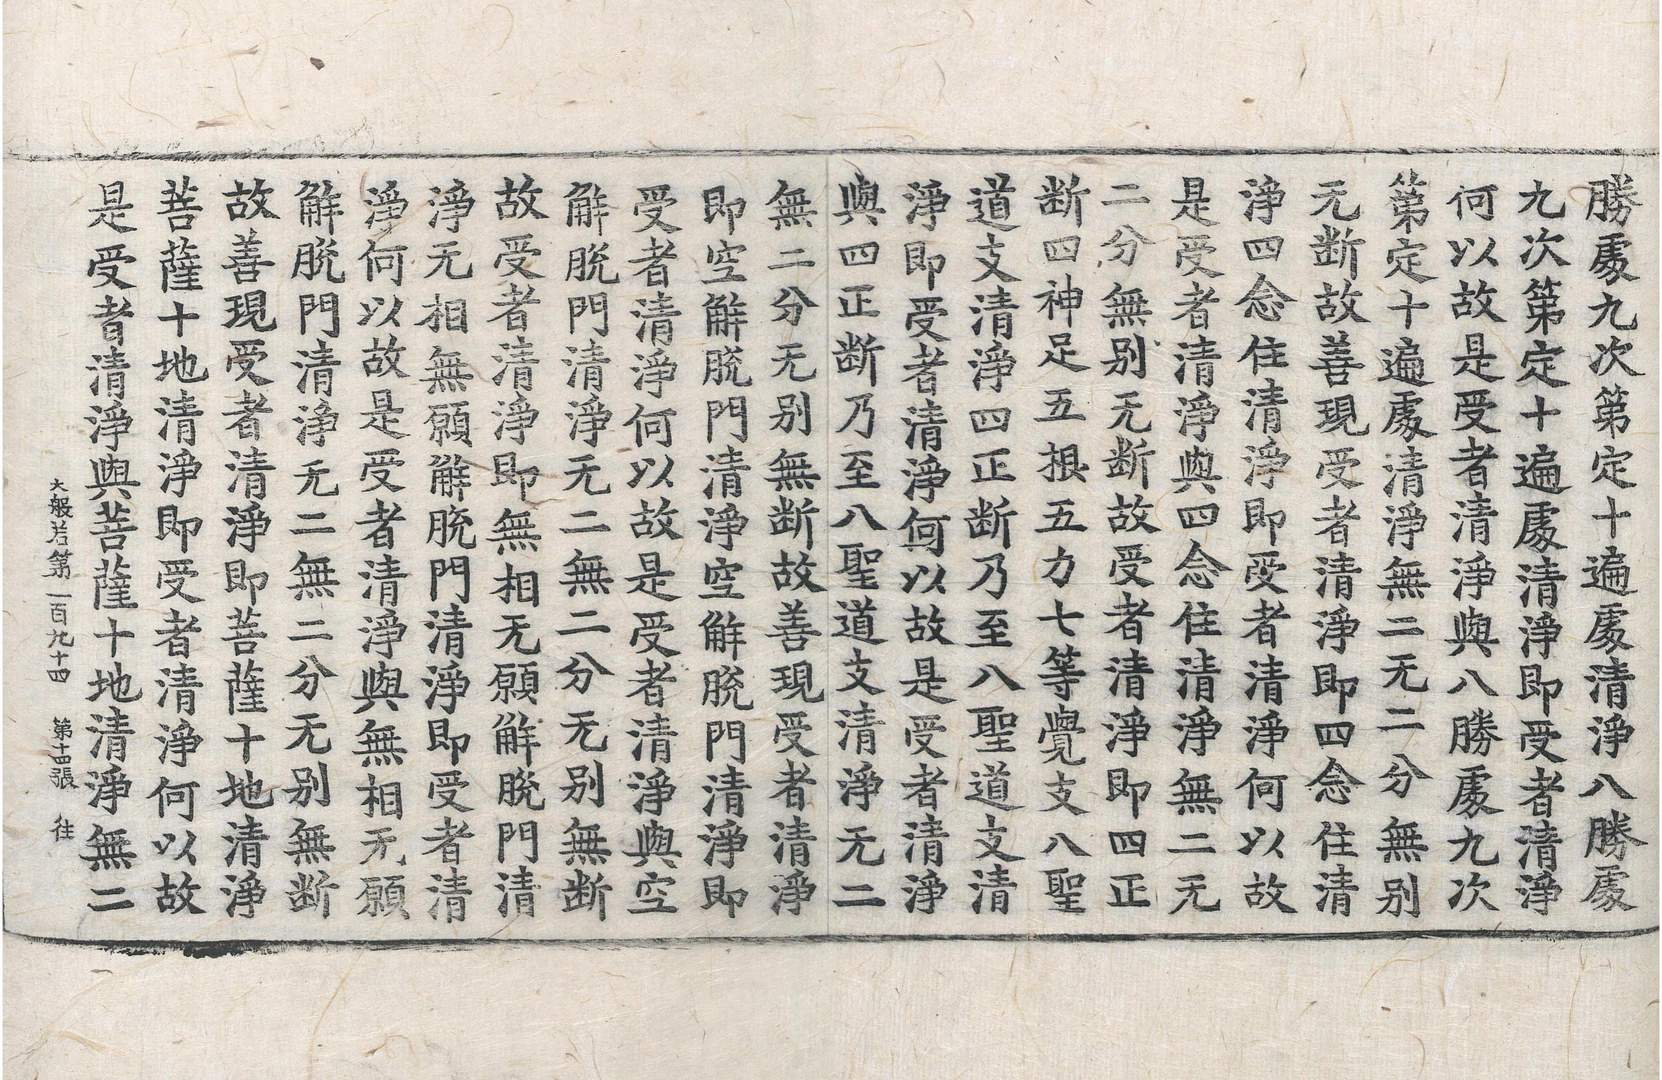 勝處九次第定十遍處清淨八勝處
九次第定十遍處清淨即受者清淨
何以故是受者清淨與八勝處九次
第定十遍處清淨無二无二分無別
无断故善現受者清淨即四念住清
淨四念住清淨即受者清淨何以故
是受者清淨與四念住清淨無二无
二分無別无断故受者清淨即四正
断四神足五根五力七等覺支八聖
道支清淨四正断乃至八聖道支清
淨即受者清淨何以故是受者清淨
與四正断乃至八聖道支清淨无二
無二分无別無断故善現受者清淨
即空解脫門清淨空解脫門清淨即
受者清淨何以故是受者清淨與空
解脫門清淨无二無二分无別無断
故受者清淨即無相无願解脫門清
淨无相無願解脫門清淨即受者清
淨何以故是受者清淨與無相无願
解脫門清淨无二無二分无別無断
故善現受者清淨即菩薩十地清淨
菩薩十地清淨即受者清淨何以故
是受者清淨與菩薩十地清淨無二
大般若第一百九十四 第十四張 往